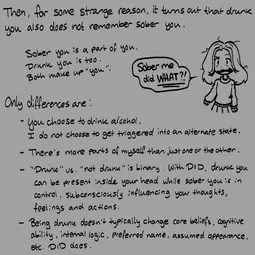 Then, for some strange reason, it turns out that drunk
you also does not remember sober you.
Sober you is a part of you.
Drunk you is too.
Both make up "you".
Sober me
did WHAT?!
Only differences are:
- You choose to drink alcohol.
I do not choose to get triggered into an alternate state.
- There's more parts of myself than just one or the other.
- "Drunk" vs. "not drunk" is binary. With DID, drunk you
can be present inside your head while sober you is in
control, subconsciously influencing your thoughts,
feelings and actions.
- Being drunk doesn't typically change core beliefs, cognitive
ability, internal logic, preferred name, assumed appearance,
etc. DID does.